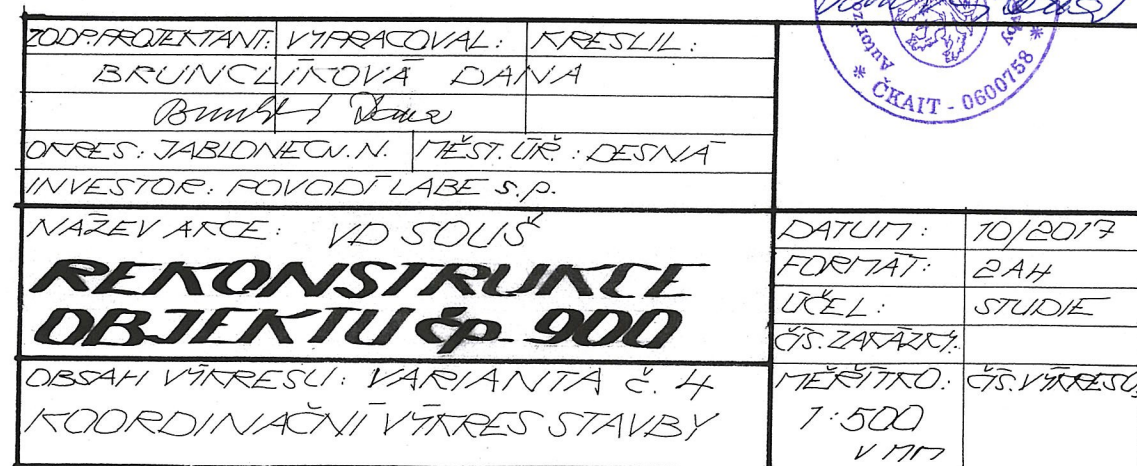 ZODP.PROJEKTANT: VYPRACOVAL: KRESLIL:
BRUNCLÍKOVÁ DANA
OKRES: JABLONEC N.N. MĚST.ÚŘ.: DESNÁ
INVESTOR: POVODÍ LABE s.p.
NÁZEV AKCE: VD SOUŠ
REKONSTRUKCE
OBJEKTU čp. 900
OBSAH VÝKRESU: VARIANTA č. 4
KOORDINAČNÍ VÝKRES STAVBY
DATUM: 10/2017
FORMÁT: 2A4
ÚČEL: STUDIE
ČÍS. ZAKÁZKY:
MĚŘÍTKO: ČÍS. VÝKRESU:
1:500
V MM
* ČKAIT - 0600758 *